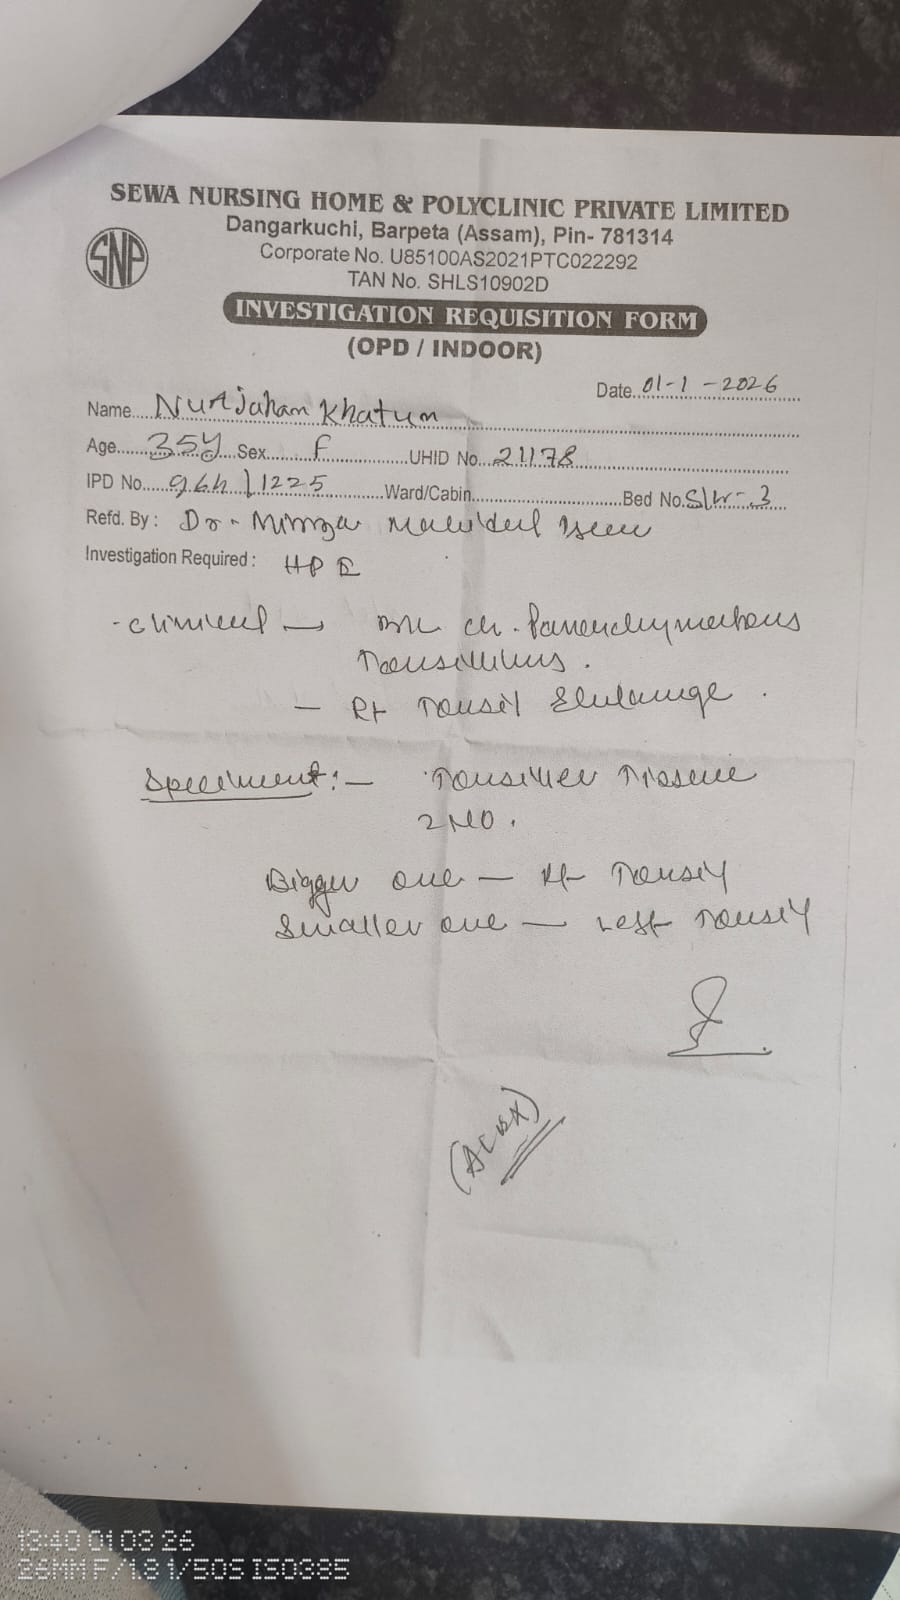 SEWA NURSING HOME & POLYCLINIC PRIVATE LIMITED
Dangarkuchi, Barpeta (Assam), Pin- 781314
SNP
Corporate No. U85100AS2021PTC022292
TAN No. SHLS10902D
INVESTIGATION REQUISITION FORM
(OPD / INDOOR)
Date. 01-1-2026
Name..... Nurjahan Khatun
Age....... 35y Sex....... F UHID No... 21178
IPD No..... /1225 Ward/Cabin.............................Bed No. 3
Refd. By : Dr.
Investigation Required : HPE
- Clinical → ch. Parenchymatous
Tonsillitis.
- Rt Tonsil
Speciment :- Tonsiller Tissue
2 NO.
Bigger one - Rt Tonsil
Smaller one - Left Tonsil
13:40 01 03 26
26MM F/1.8 1/50S ISO385